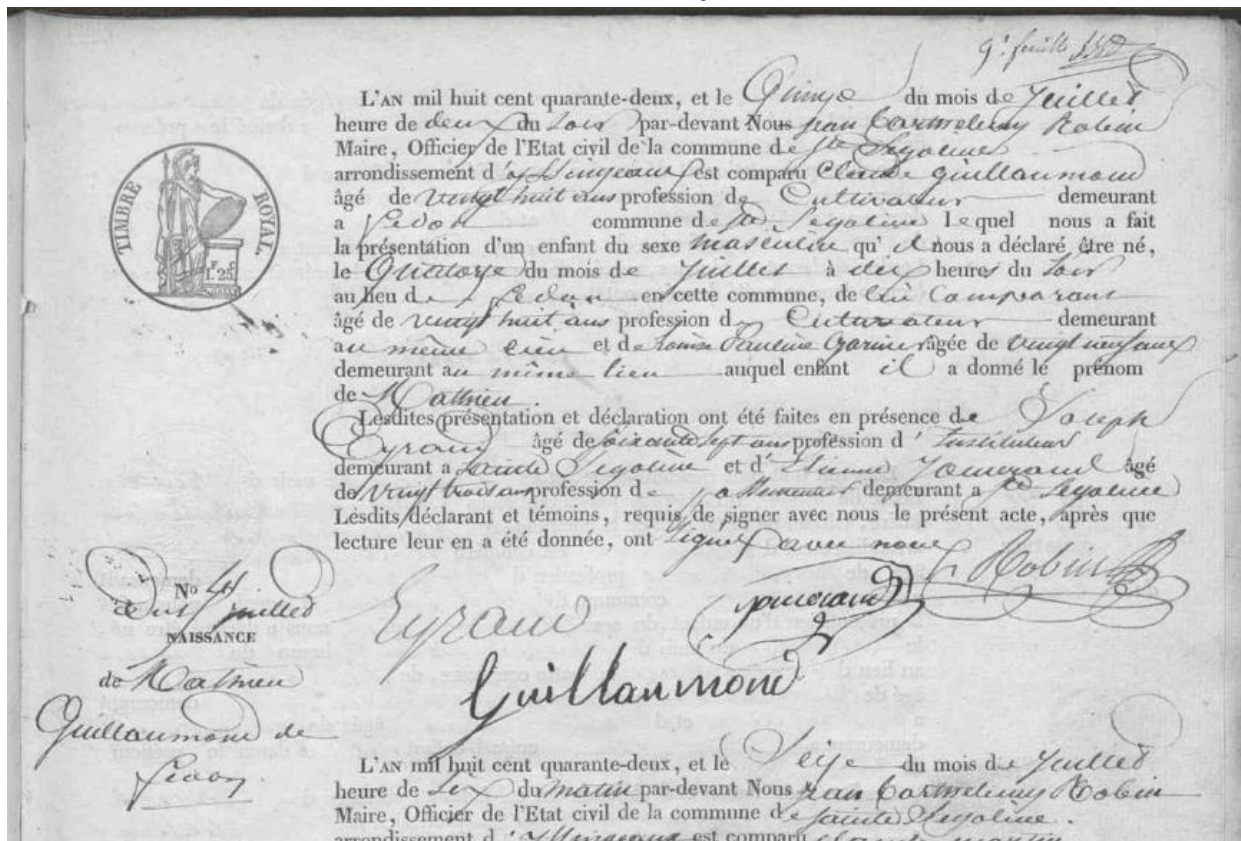 9e feuille
L'AN mil huit cent quarante-deux, et le Quinze du mois de Juillet
heure de deux du soir par-devant Nous jean Barthelemy Robin
Maire, Officier de l'Etat civil de la commune de Ste Segolene
arrondissement d'yssingeaux est comparu Claude guillaumond
âgé de vingt huit ans profession de Cultivateur demeurant
a Pedon commune de Ste Segolene lequel nous a fait
la présentation d'un enfant du sexe masculin qu'il nous a déclaré être né,
le Quatorze du mois de Juillet à dix heures du soir
au lieu de Pedon en cette commune, de lui Comparant
âgé de vingt huit ans profession de Cultivateur demeurant
au même lieu et de Louise Pauline âgée de vingt neuf ans
demeurant au même lieu auquel enfant il a donné le prénom
de Mathieu.
Lesdites présentation et déclaration ont été faites en présence de Joseph
Eyraud âgé de soixante sept ans profession d'Instituteur
demeurant a Sainte Segolène et d'Etienne âgé
de vingt trois ans profession de demeurant a Ste Segolene
Lesdits déclarant et témoins, requis de signer avec nous le présent acte, après que
lecture leur en a été donnée, ont signé avec nous
Robin
Eyraud
Guillaumond
TIMBRE ROYAL.
F. C.
1. 25
No 4
Juillet
NAISSANCE
de Mathieu
Guillaumond de
Pedon.
L'AN mil huit cent quarante-deux, et le Seize du mois de Juillet
heure de six du matin par-devant Nous jean Barthelemy Robin
Maire, Officier de l'Etat civil de la commune de sainte Segolène.
arrondissement d'yssingeaux est comparu claude martin